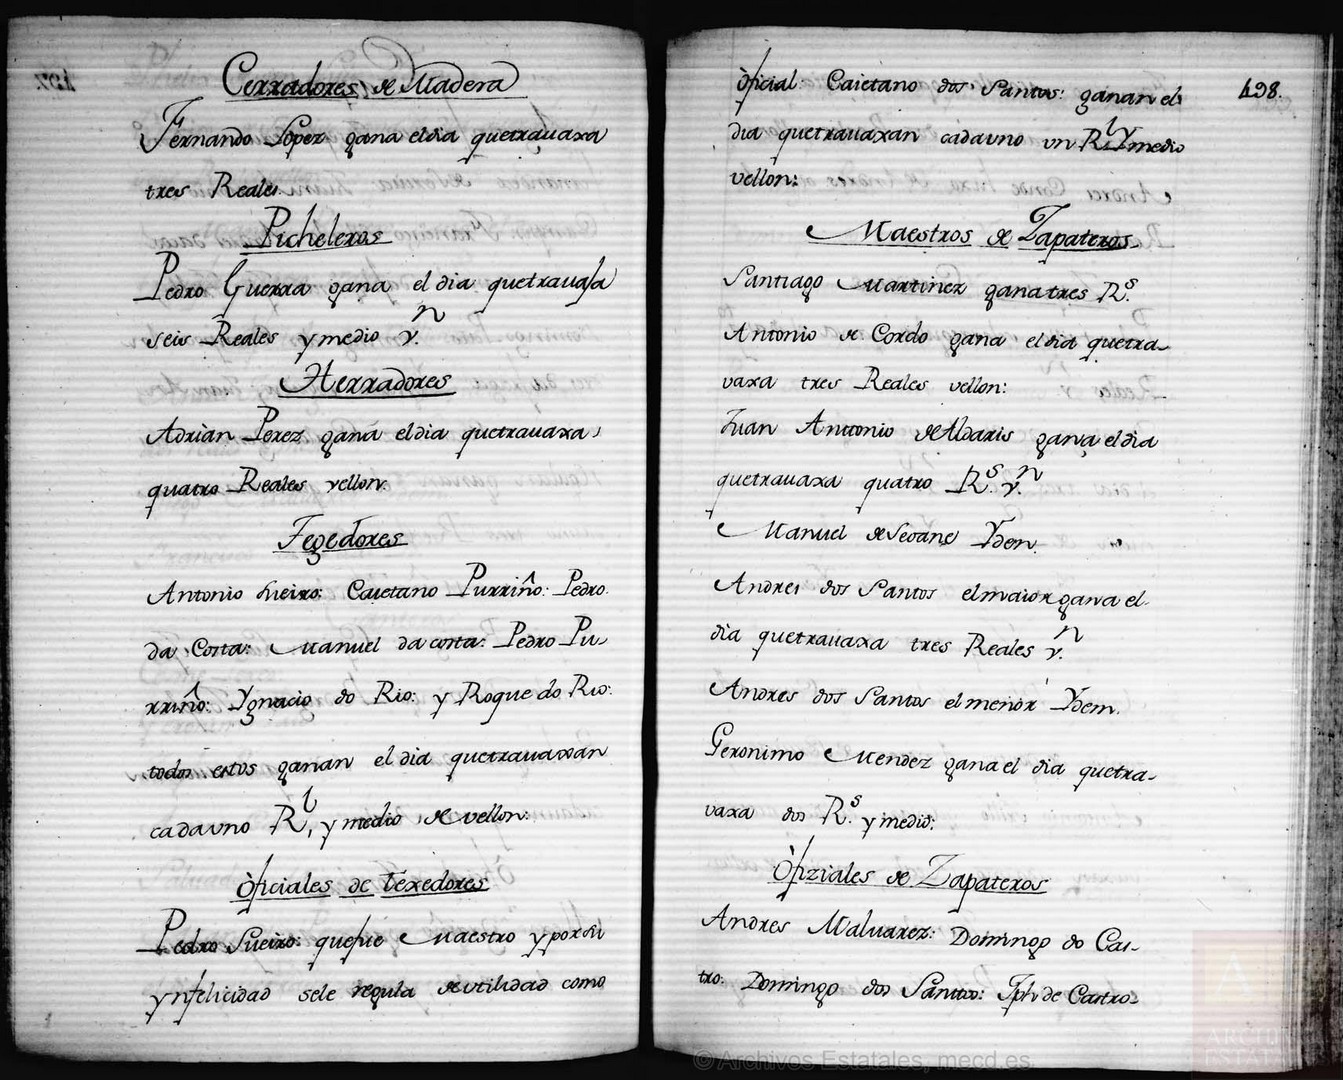 Cerradores, de Madera
Fernando Lopez gana el dia quetrauaxa
tres Reales.
Picheleros
Pedro Guerra gana el dia quetrauaja
seis Reales y medio v.n
Herradores
Adrian Perez gana el dia quetrauaxa
quatro Reales vellon.
Tegedores
Antonio Sueiro: Caietano Purriño: Pedro
da Costa: Manuel da costa: Pedro Pu-
rriño: Ygnacio do Rio: y Roque do Rio:
todos estos ganan el dia quetrauaxan
cadauno R.l y medio de vellon:
Oficiales de Texedores
Pedro Sueiro: quefue Maestro y por su
ynfelicidad sele regula de utilidad como
498.
oficial Caietano dos Santos: ganan el
dia quetrauaxan cadauno un R.l Ymedio
vellon:
Maestros de Zapateros
Santiago Martinez gana tres R.s
Antonio de Cordo gana el dia quetra-
vaxa tres Reales vellon:
Juan Antonio de Aldaris gana el dia
quetrauaxa quatro R.s v.n
Manuel de Seoane Ydem.
Andres dos Santos el maior gana el
dia quetrauaxa tres Reales v.n
Andres dos Santos el menor Ydem.
Geronimo Mendez gana el dia quetra-
vaxa dos R.s y medio:
Ofiziales de Zapateros
Andres Malvarez: Domingo do Cas-
tro: Domingo dos Santos: Jph de Castro
© Archivos Estatales, mecd.es